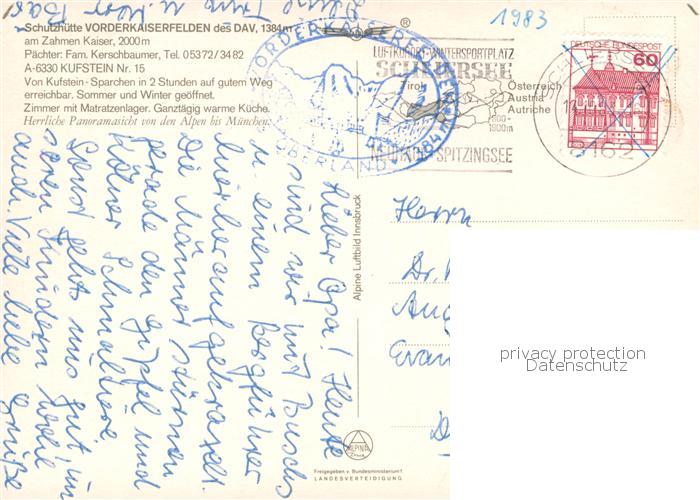 1983
Schutzhütte VORDERKAISERFELDEN des DAV, 1384m
am Zahmen Kaiser, 2000m
Pächter: Fam. Kerschbaumer, Tel. 05372/3482
A-6330 KUFSTEIN Nr. 15
Von Kufstein-Sparchen in 2 Stunden auf gutem Weg
erreichbar. Sommer und Winter geöffnet.
Zimmer mit Matratzenlager. Ganztägig warme Küche.
Herrliche Panoramasicht von den Alpen bis München.
VORDERKAISERFELDEN
1384m
OBERLAND
®
LUFTKURORT-WINTERSPORTPLATZ
SCHLIERSEE
Tirol
Österreich
Austria
Autriche
800-
1900m
NEUHAUS-SPITZINGSEE
SCHLIERSEE
8162
DEUTSCHE BUNDESPOST
60
Lieber Opa! Heute
sind wir mit Buschs
u. einem Bergführer
hierheraufgekraxelt.
Die Männer stürmen
gerade den Gipfel und
Sonst gehts uns gut, un-
seren Kindern
auch. Viele liebe Grüße
Alpine Luftbild Innsbruck
Herrn
Dr.
Aug
Evan
D
ALPINA
Druck
Freigegeben v. Bundesministerium f.
LANDESVERTEIDIGUNG
privacy protection
Datenschutz